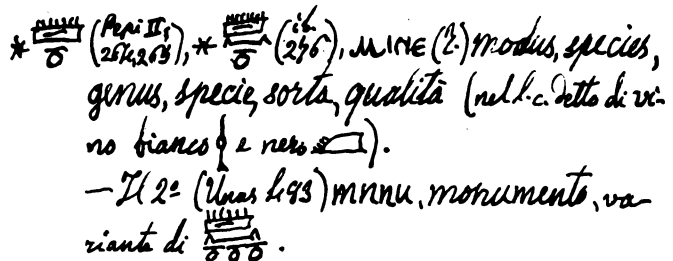 * 𓏠𓏌 (Pepi II, 264, 265), * 𓏠𓈖𓏌 (ib. 276), ⲙⲓⲛⲉ (?.) modus, species,
genus, specie, sorta, qualità (nel l. c. detto di vi-
no bianco e nero).
— Il 2º (Unas 493) mnnu, monumento, va-
riante di 𓏠𓈖𓏌𓏌𓏌.